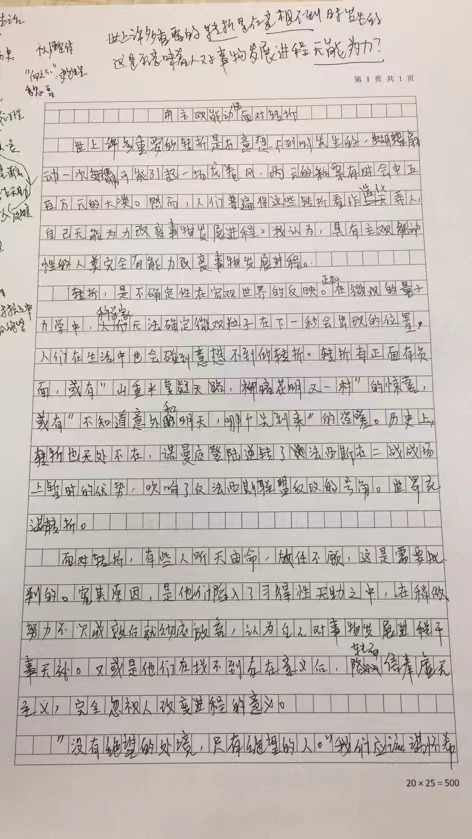 世上许多重要的转折是在意想不到时发生的
这是否意味着人对事物发展进程无能为力?
第 1 页 共 1 页
用主观能动性面对转折
世上许多重要的转折是在意想不到时发生的,蝴蝶扇
动一次翅膀可能引起一场龙卷风,两元的彩票有时会中五
百万元的大奖。然而,人们普遍将这些转折看作造化弄人,
自己无能为力改变事物发展进程。我认为,具有主观能动
性的人类完全有能力改变事物发展进程。
转折,是不确定性在宏观世界的反映。正如在微观的量子
力学中,科学家无法确定微观粒子在下一秒会出现的位置。
人们在生活中也会碰到意想不到的转折。转折有正面有负
面,或有"山重水复疑无路,柳暗花明又一村"的惊喜,
或有"不知道意外和明天,哪个先到来"的 。历史上,
转折也无处不在,诺曼底登陆逆转了法西斯在二战战场
上暂时的优势,吹响了反法西斯联盟反攻的号角。世界充
满转折。
面对转折,有些人听天由命,放任不顾,这是需要批
判的。究其原因,是他们陷入了习得性无助之中,在稍做
努力不欠成败后就彻底放弃,认为自己对事物发展进程于
事无补。又或是他们在找不到存在意义后,转而信奉虚无
主义,完全忽视人改变进程的意义。
"没有绝望的处境,只有绝望的人。"我们应该满怀希
20×25=500